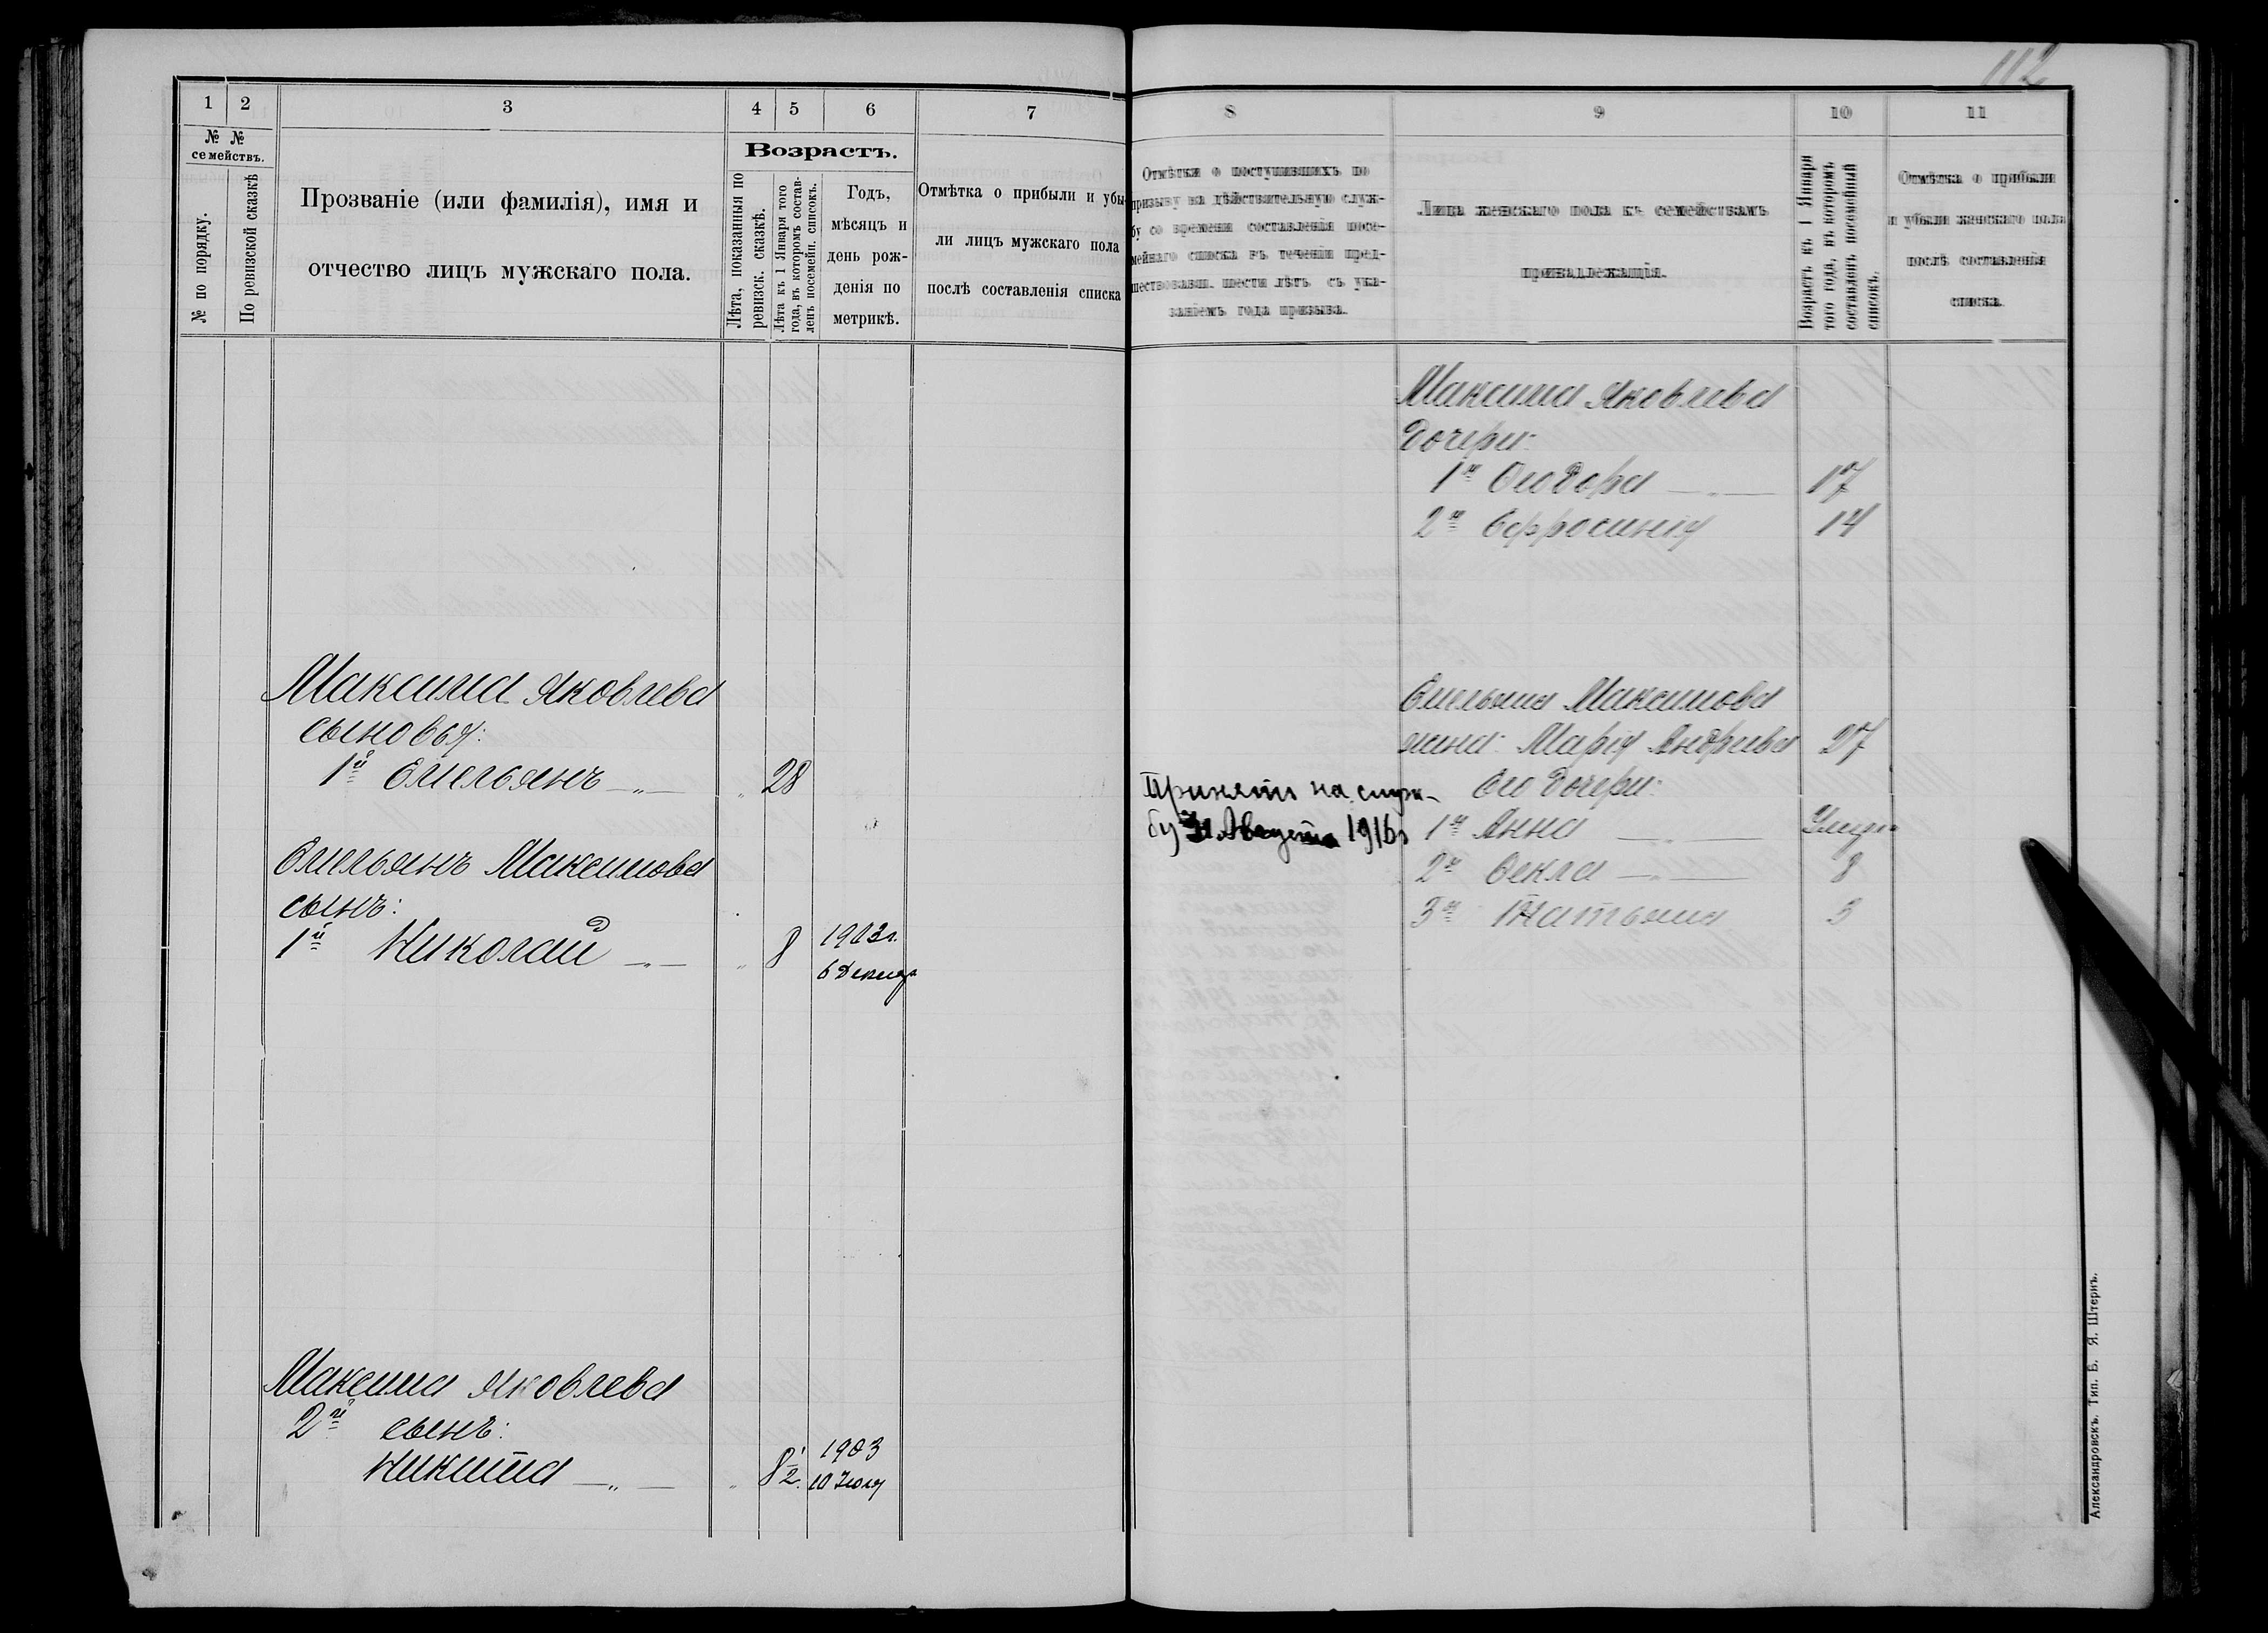 112
1
2
3
4
5
6
7
8
9
10
11
№ №
семействъ.
№ по порядку.
По ревизской сказкѣ
Прозваніе (или фамилія), имя и
отчество лицъ мужскаго пола.
Возрастъ.
Лѣта, показанныя по
ревизск. сказкѣ.
Лѣта къ 1 Января того
года, въ которомъ состав-
ленъ посемейн. списокъ.
Годъ,
мѣсяцъ и
день рож-
денія по
метрикѣ.
Отмѣтка о прибыли и убы-
ли лицъ мужскаго пола
послѣ составленія списка
Отмѣтки о поступившихъ по
призыву на дѣйствительную служ-
бу со времени составленія посе-
мейнаго списка въ теченіи пред-
шествовавш. шести лѣтъ съ ука-
заніемъ года призыва.
Лица женскаго пола къ семействамъ
принадлежащія.
Возрастъ къ 1 Января
того года, въ которомъ
составленъ посемейный
списокъ.
Отмѣтка о прибыли
и убыли женскаго пола
послѣ составленія
списка.
Максима Яковлева
дочери:
1я Ѳеодора —„— 17
2я Ефросинія 14
Максима Яковлева
сыновья:
1й Емельянъ —„— „ 28
Емельянъ Максимова
сынъ:
1й Николай —„— „ 8 1903г.
6 Декабр
Принятъ на служ-
бу Августа 1916г
Емельяна Максимова
жена: Марія Андреева 27
Его дочери:
1я Анна —„— Умерла
2я Ѳекла —„— 8
3я Татьяна 3
Максима Яковлева
2й сынъ:
Никита —„— „ 8 1/2. 1903
10 Іюля
Александровскъ. Тип. Б. Я. Штернъ.